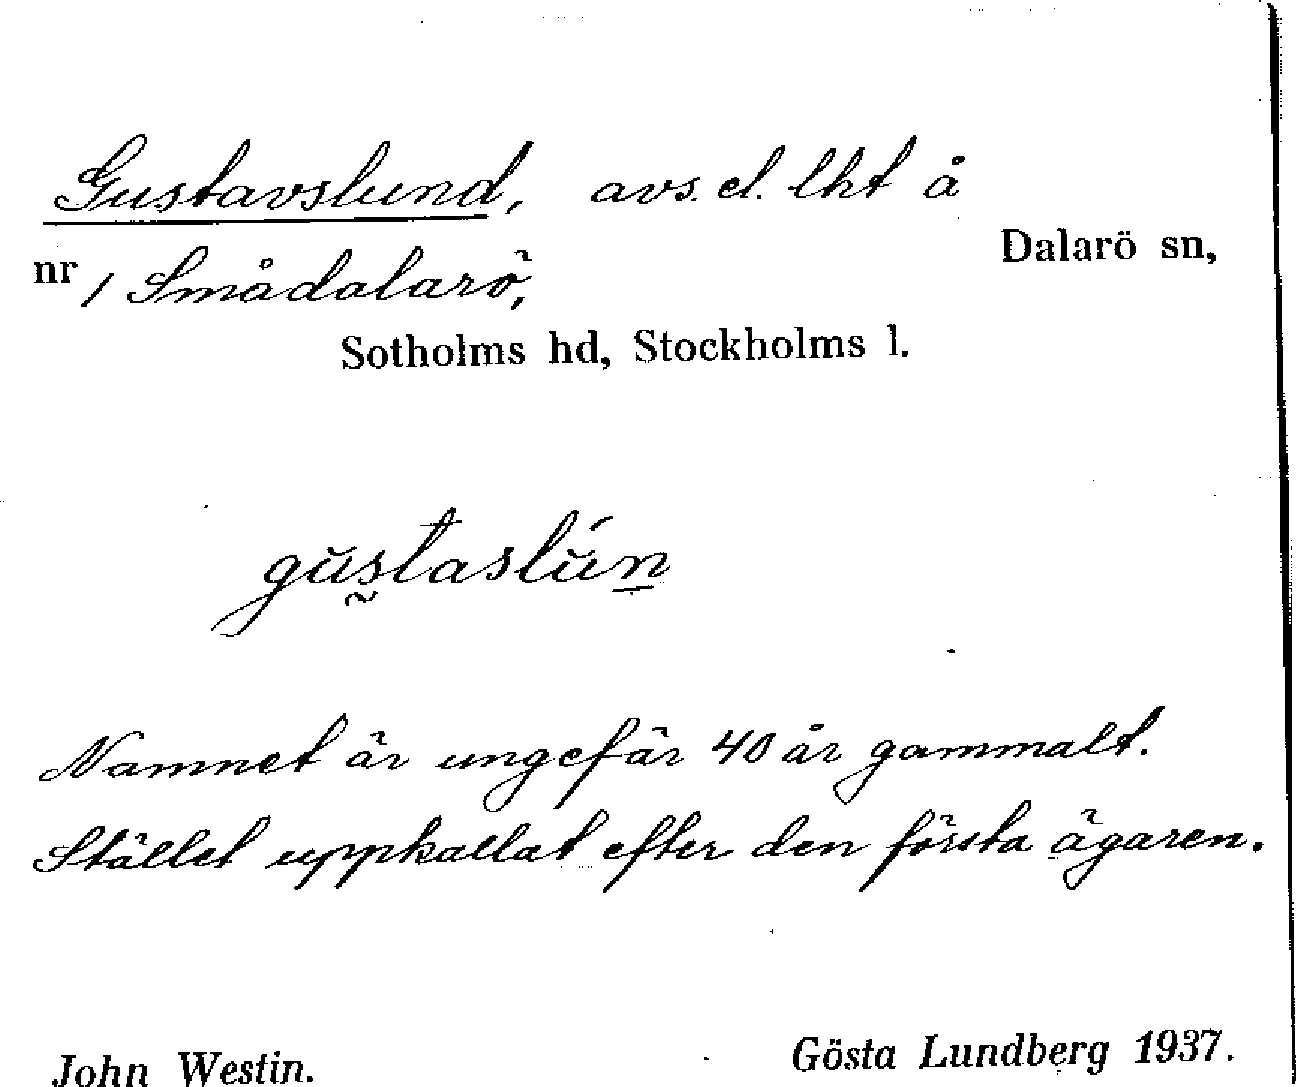 Gustavslund, avs. el. lht å
Dalarö sn,
nr 1 Smådalarö,
Sotholms hd, Stockholms l.
gŭstaslŭ́n
Namnet är ungefär 40 år gammalt.
Stället uppkallat efter den första ägaren.
John Westin. Gösta Lundberg 1937.